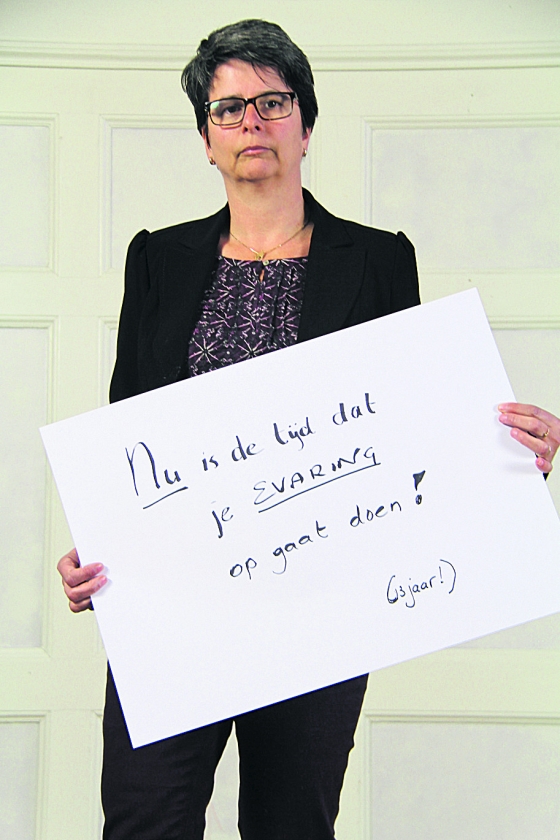 Nu is de tijd dat
je EVARING
op gaat doen!
(13 jaar!)